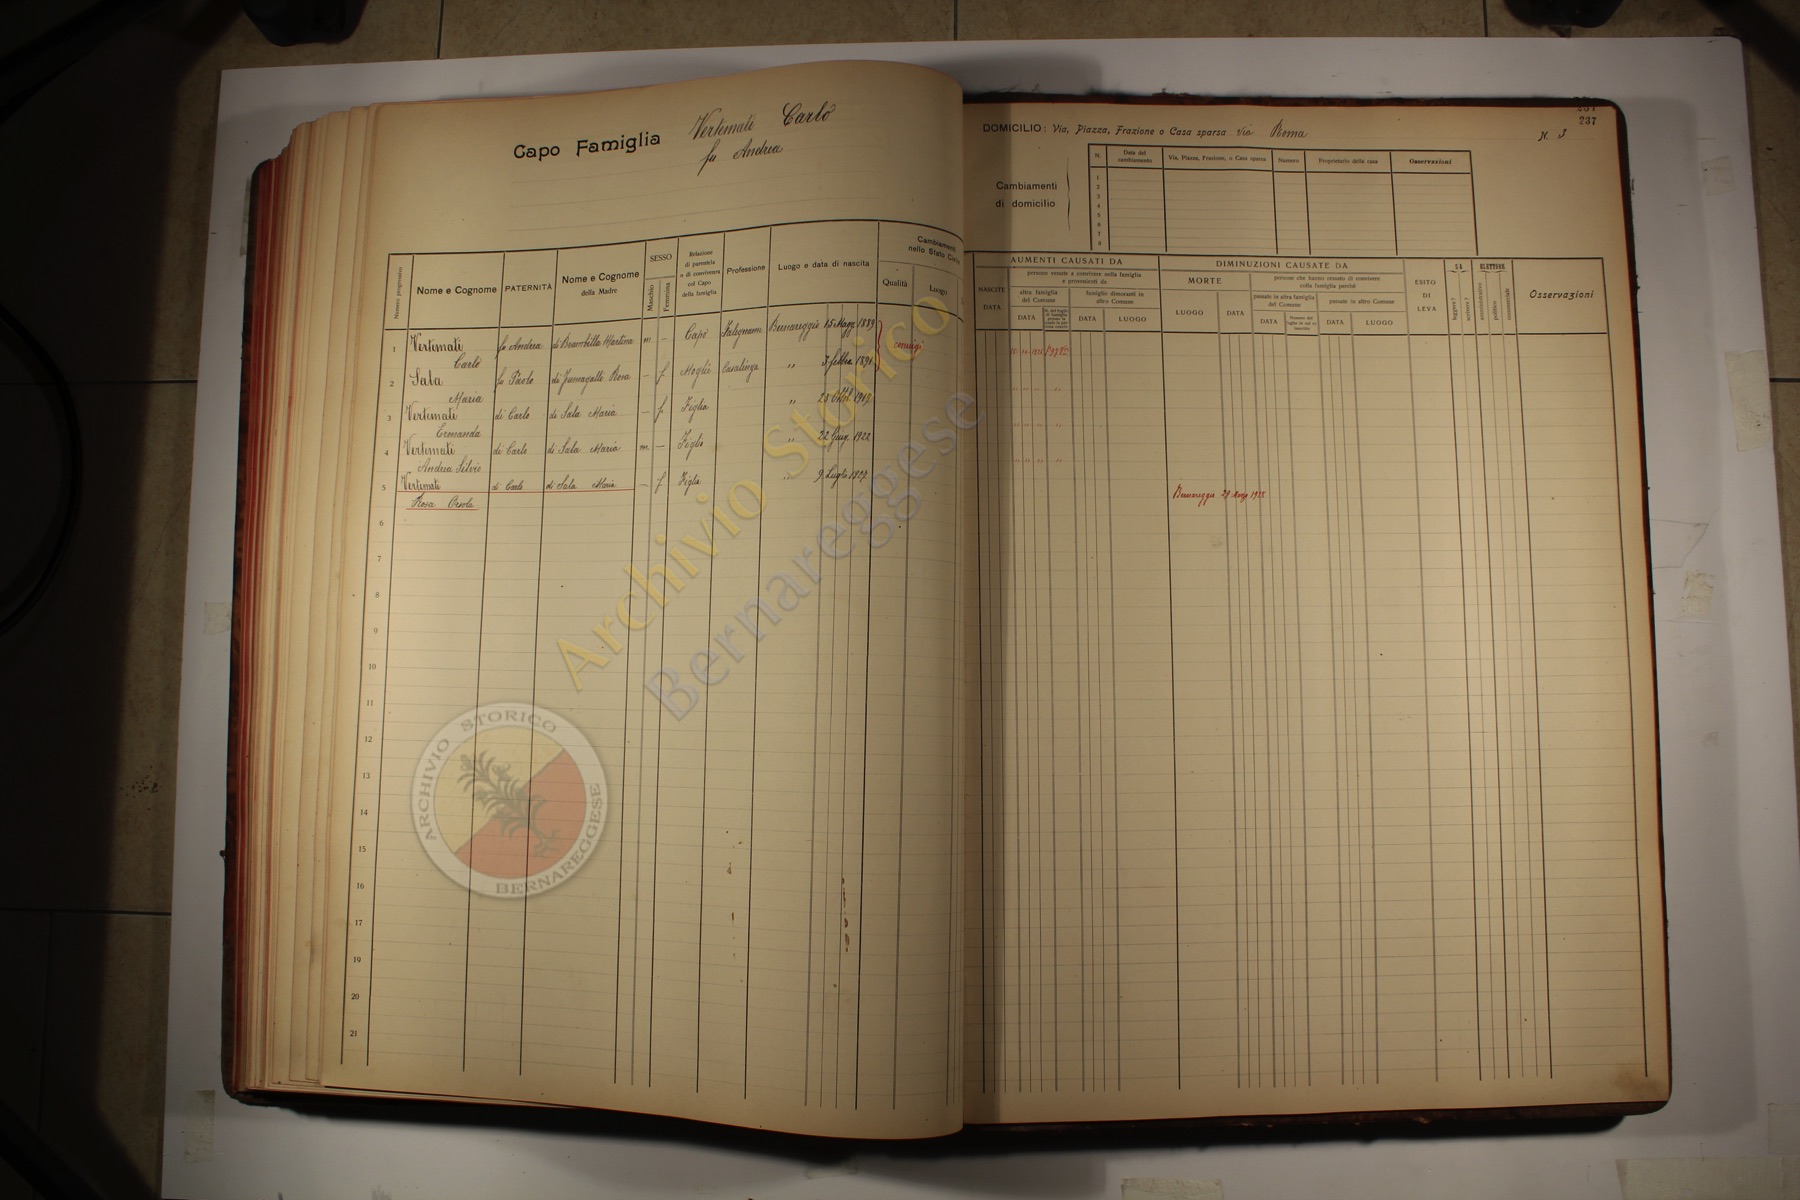 Capo Famiglia Vertemati Carlo
fu Andrea
237
DOMICILIO: Via, Piazza, Frazione o Casa sparsa Via Roma N. 3
Cambiamenti
di domicilio
N. Data del cambiamento Via, Piazza, Frazione, o Casa sparsa Numero Proprietario della casa Osservazioni
1
2
3
4
5
6
7
8
Numero progressivo Nome e Cognome PATERNITÀ Nome e Cognome della Madre SESSO Maschio Femmina Relazione di parentela o di convivenza col Capo della famiglia Professione Luogo e data di nascita Cambiamenti nello Stato Civile Qualità Luogo
AUMENTI CAUSATI DA
NASCITE DATA
persone venute a convivere nella famiglia e provenienti da
altra famiglia del Comune
DATA
famiglie dimoranti in altro Comune
DATA LUOGO
DIMINUZIONI CAUSATE DA
MORTE
LUOGO DATA
persone che hanno cessato di convivere colla famiglia perchè
passate in altra famiglia del Comune
DATA
passate in altro Comune
DATA LUOGO
ESITO DI LEVA
SA
leggere? scrivere?
ELETTORE
amministrativo politico commerciale
Osservazioni
1 Vertemati fu Andrea di Brambilla Martina m – Capo Falegname Bernareggio 15 Magg. 1889 coniugi
Carlo
2 Sala fu Paolo di Fumagalli Rosa – f Moglie Casalinga " 3 febbr. 1891
Maria
3 Vertemati di Carlo di Sala Maria – f Figlia " 25 Ott. 1919
Ermanda
4 Vertemati di Carlo di Sala Maria m – Figlio " 22 Giug. 1922
Andrea Silvio
5 Vertemati di Carlo di Sala Maria – f Figlia " 9 Luglio 1927 Bernareggio 29 Marzo 1928
Rosa Orsola
6
7
8
9
10
11
12
13
14
15
16
17
18
19
20
21
Archivio Storico
Bernareggese
ARCHIVIO STORICO
BERNAREGGESE